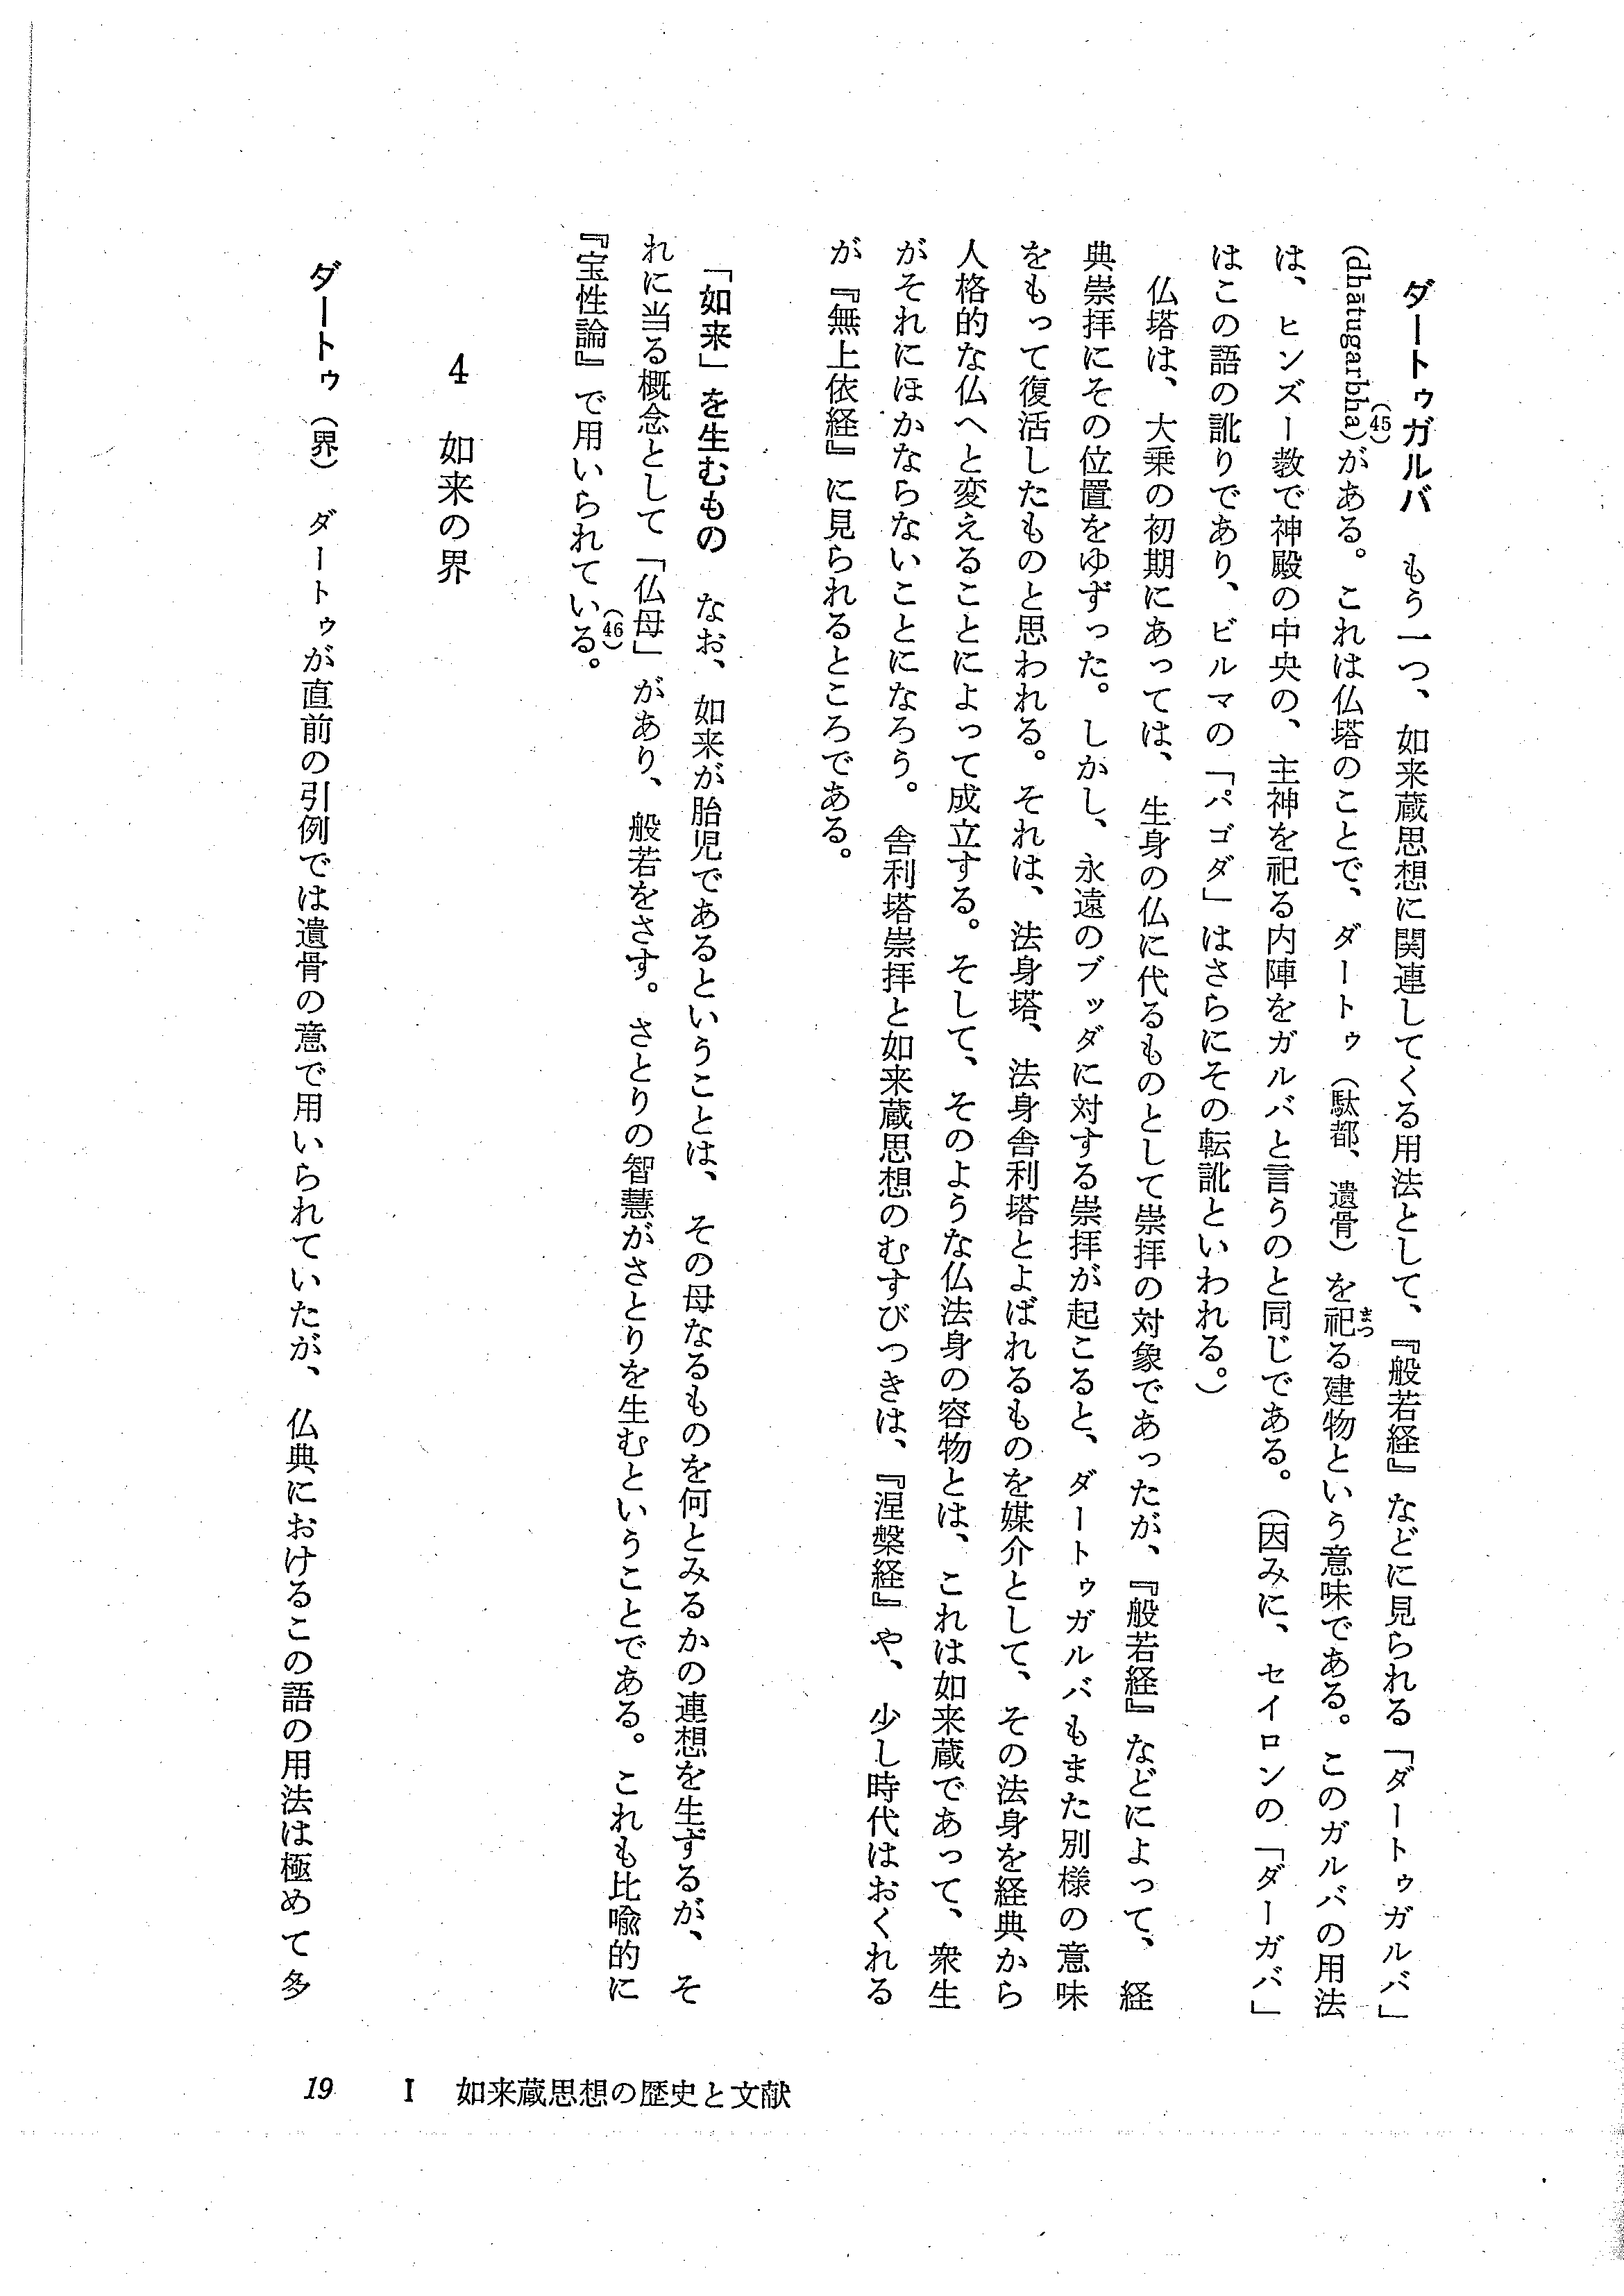 ダートゥガルバ　もう一つ、如来蔵思想に関連してくる用法として、『般若経』などに見られる「ダートゥガルバ」
(dhātugarbha)(45)がある。これは仏塔のことで、ダートゥ（駄都、遺骨）を祀まつる建物という意味である。このガルバの用法
は、ヒンズー教で神殿の中央の、主神を祀る内陣をガルバと言うのと同じである。（因みに、セイロンの「ダーガバ」
はこの語の訛りであり、ビルマの「パゴダ」はさらにその転訛といわれる。）
仏塔は、大乗の初期にあっては、生身の仏に代るものとして崇拝の対象であったが、『般若経』などによって、経
典崇拝にその位置をゆずった。しかし、永遠のブッダに対する崇拝が起こると、ダートゥガルバもまた別様の意味
をもって復活したものと思われる。それは、法身塔、法身舎利塔とよばれるものを媒介として、その法身を経典から
人格的な仏へと変えることによって成立する。そして、そのような仏法身の容物とは、これは如来蔵であって、衆生
がそれにほかならないことになろう。舎利塔崇拝と如来蔵思想のむすびつきは、『涅槃経』や、少し時代はおくれる
が『無上依経』に見られるところである。
「如来」を生むもの　なお、如来が胎児であるということは、その母なるものを何とみるかの連想を生ずるが、そ
れに当る概念として「仏母」(46)があり、般若をさす。さとりの智慧がさとりを生むということである。これも比喩的に
『宝性論』で用いられている。
4　如来の界
ダートゥ（界）　ダートゥが直前の引例では遺骨の意で用いられていたが、仏典におけるこの語の用法は極めて多
19　I　如来蔵思想の歴史と文献